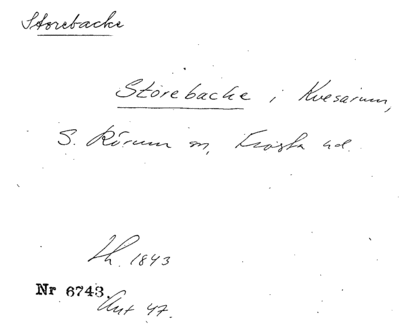 Storebacke
Storebacke i Kvesarum,
S. Rörum sn, Frosta hd.
Lh. 1843
Nr 6743.
Ant 47.